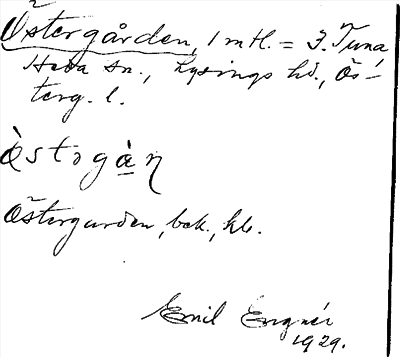 Östergården, 1 mtl. = 3. Tuna,
Heda sn., Lysings hd., Ös-
terg. l.
östərgàn
Östergarden, bek., hb.
Emil Engnér
1929.